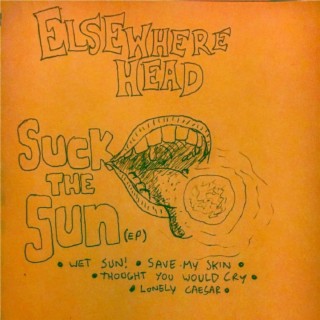 ELSEWHERE
HEAD
SUCK
THE
SUN (EP)
• WET SUN! • SAVE MY SKIN •
• THOGHT YOU WOULD CRY •
• LONELY CAESAR •